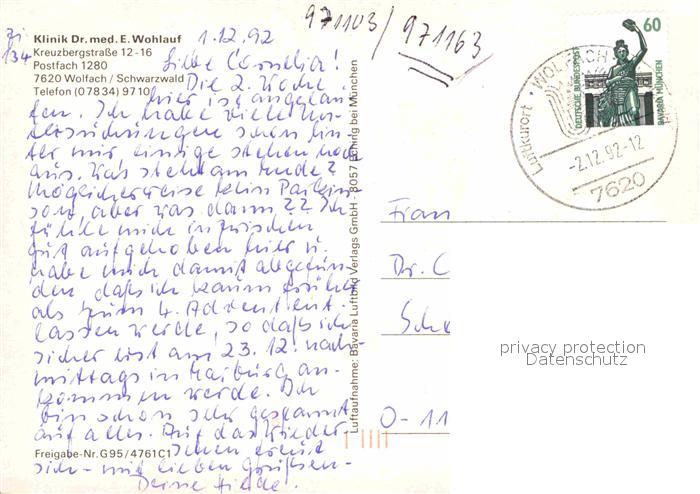 Zi
134
Klinik Dr. med. E. Wohlauf
Kreuzbergstraße 12-16
Postfach 1280
7620 Wolfach / Schwarzwald
Telefon (07834) 9710
1.12.92
Liebe Cornelia!
Die 2. Woche
hier ist angelau-
fen. Ich habe viele Un-
tersuchungen schon hin-
ter mir, einige stehen noch
aus. Was steht am Ende?
Möglicherweise kein Parkin-
son, aber was dann?? Ich
fühle mich inzwischen
gut aufgehoben hier u.
habe mich damit abgefun-
den, daß ich kaum früher
als zum 4. Advent ent-
lassen werde, so daß ich
sicher erst am 23.12. nach-
mittags in Marburg an-
kommen werde. Ich
bin schon sehr gespannt
auf alles. Auf das Wieder-
sehen freut
sich - mit lieben Grüßen -
Deine Hilde.
Freigabe-Nr. G95/4761C1
Luftaufnahme: Bavaria Luftbild Verlags GmbH · 8057 Eching bei München
971103/971163
60
DEUTSCHE BUNDESPOST
BAVARIA MÜNCHEN
Luftkurort · WOLFACH
-2.12.92-12
7620
Frau
Dr. C
Sch
O-11
privacy protection
Datenschutz